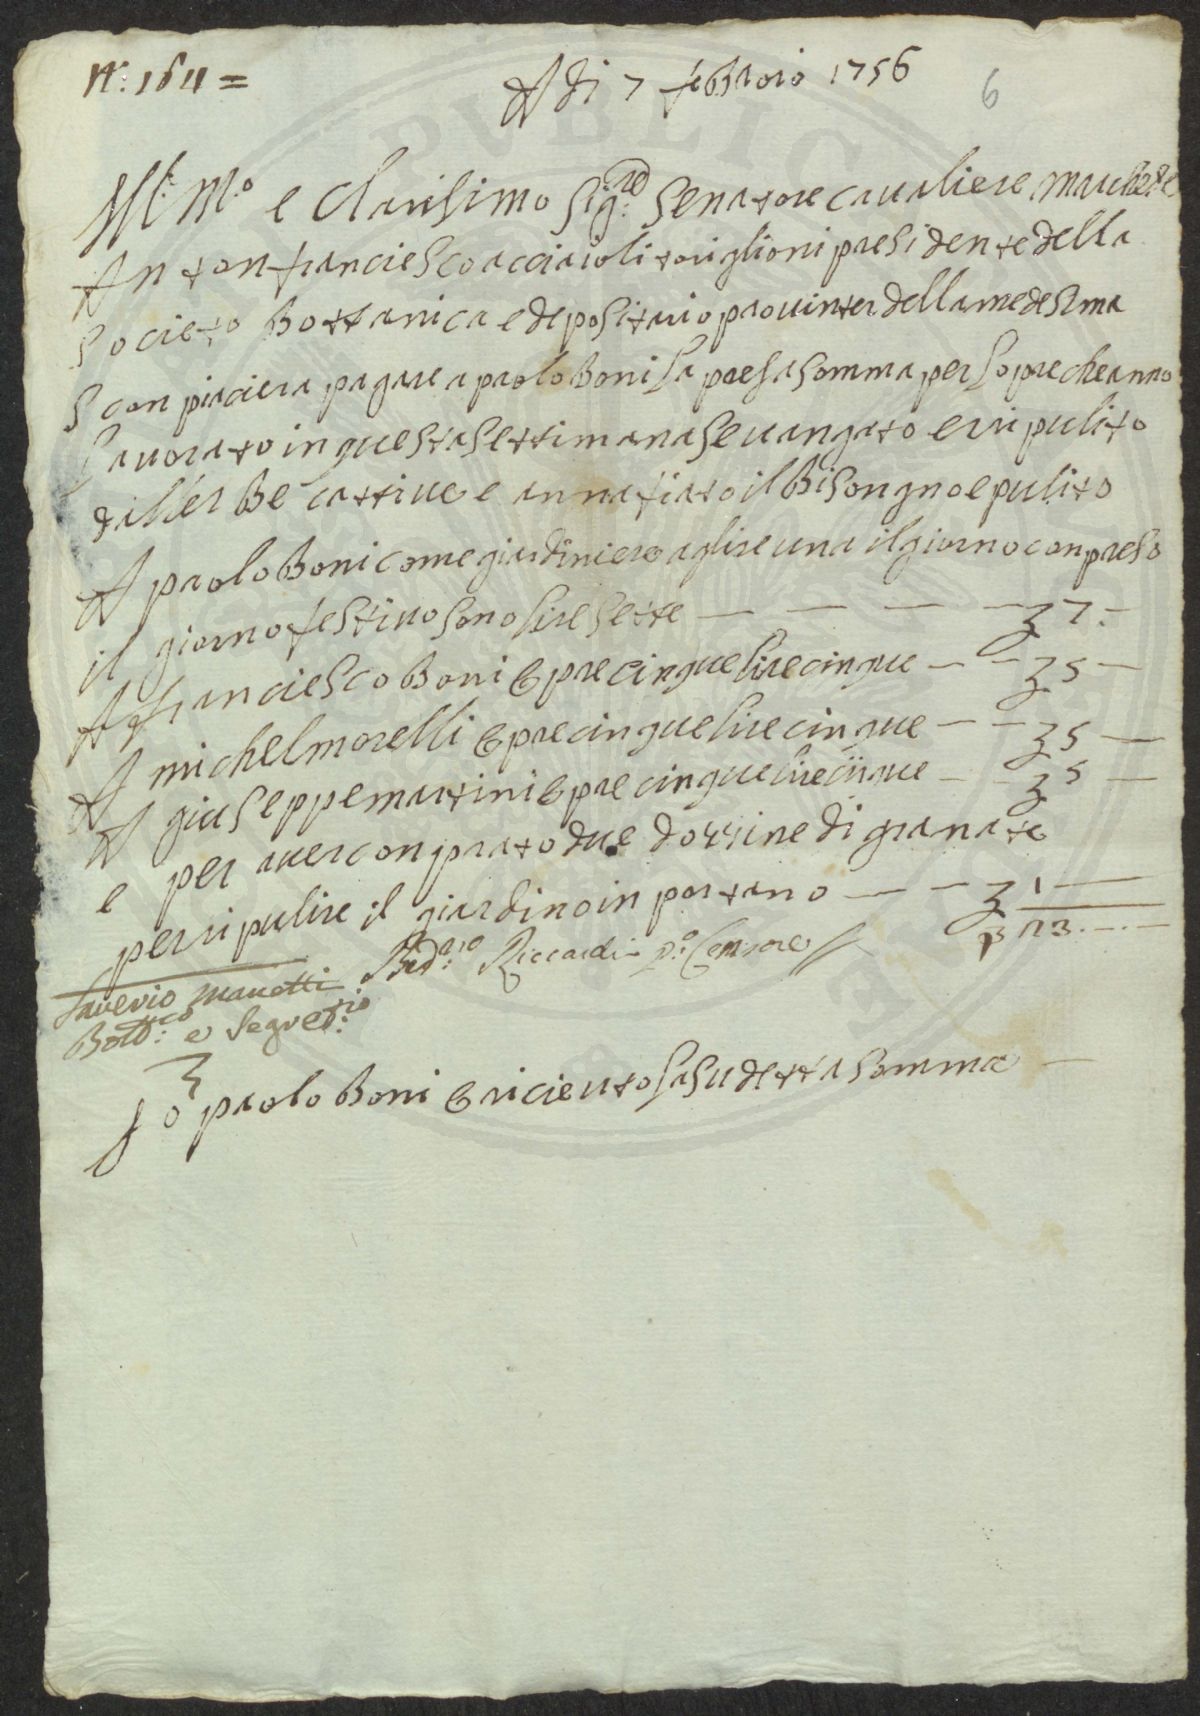 N: 164 =
A dì 7 febbraio 1756
6
Ill: mo e Clarisimo Sig:re Senatore cavaliere marchese
Antonfranciesco acciaioli toriglioni presidente della
Societo Bottanica e depositario provinter della medesima
Sconpiaciera pagare a paolo Boni la presa somma per lopre che anno
lavorato in questa settimana se vangato e ripulito
dall'erbe cattive e annafiato il Bisongno e pulito
A paolo Boni come giardiniere a lire una il giorno conpreso
il giorno festivo sono lire sette — — — — 7 -
A franciesco Boni e pre cinque lire cinque — — 5 —
A michel morelli e pre cinque lire cinque — — 5 —
A giuseppe martini e pre cinque lire ciique — — 5 —
e per aver conprato due dozzine di granate
per ripulire il giardino in portano — — 1 —
23. — . —
Saverio Manetti Bid:rio Riccardi P:o Censore
Bott:co e Segret:rio
Io paolo Boni e ricieuto la sudetta somma —